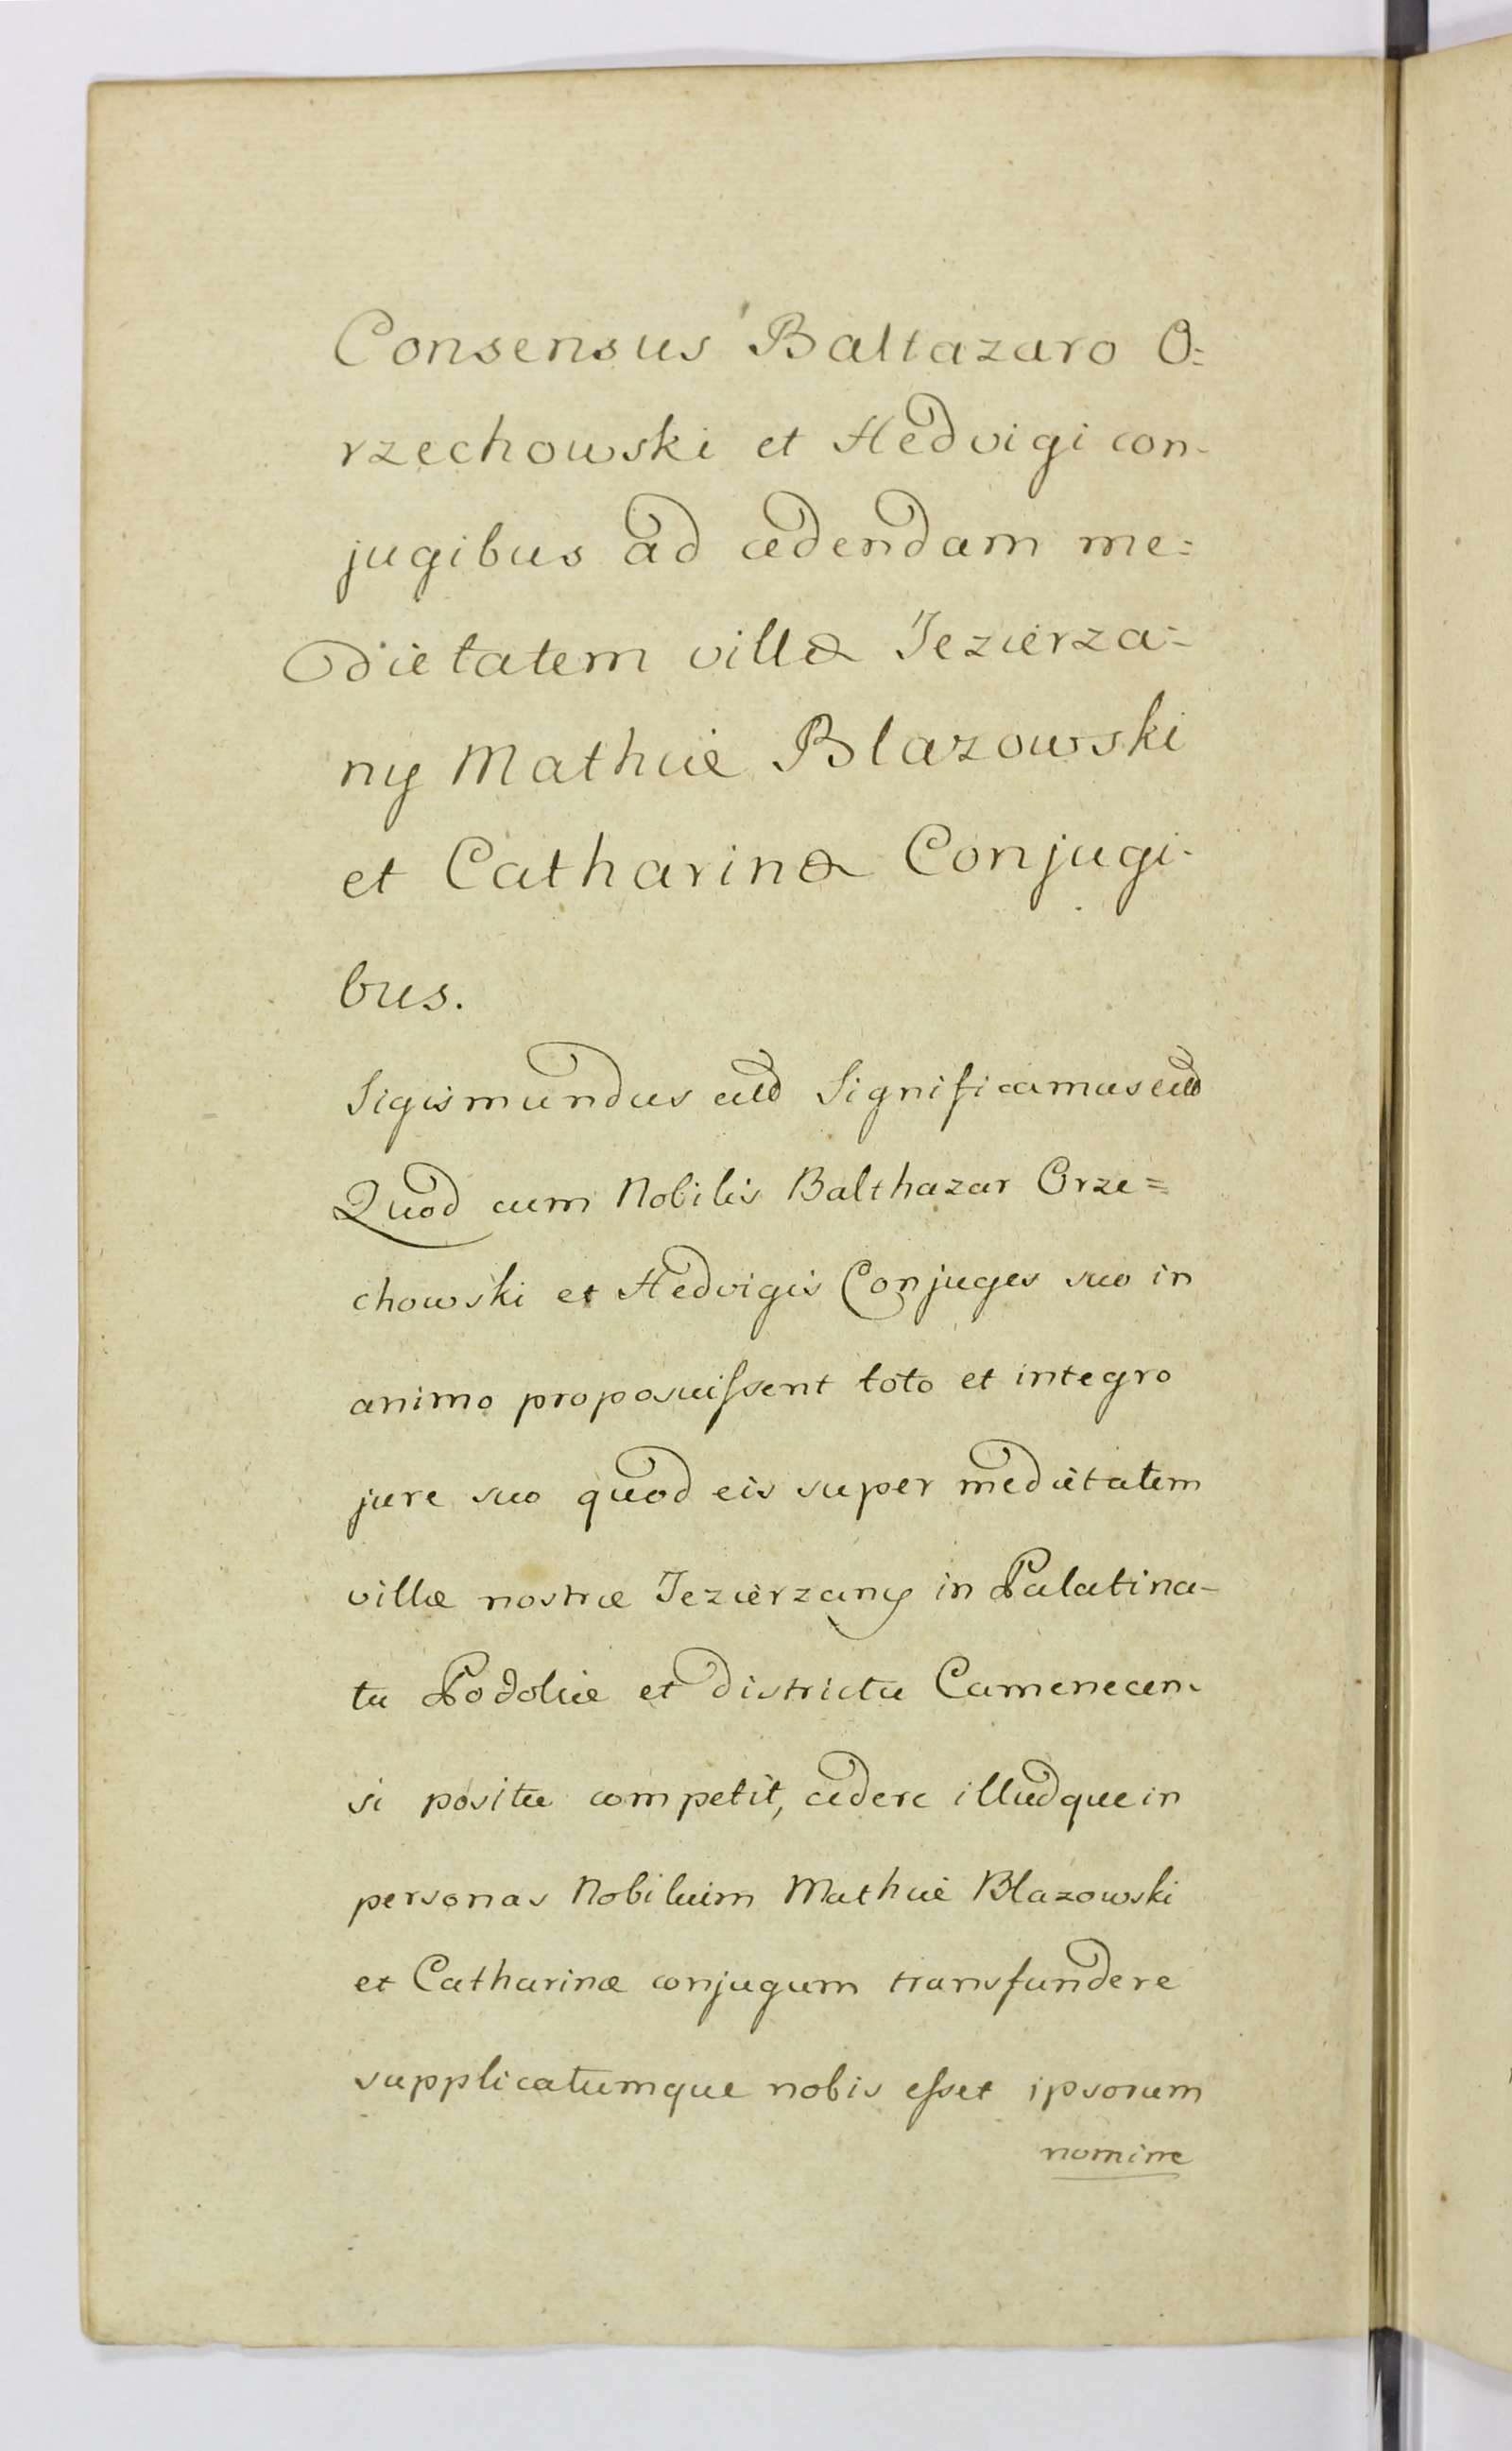 Consensus Baltazaro O=
rzechowski et Hedvigi con-
jugibus ad cedendam me=
dietatem villæ Jezierza=
ny Mathiæ Blazowski
et Catharinæ Conjugi-
bus.
Sigismundus &c̃ Significamus &c̃
Quod cum Nobilis Balthazar Orze=
chowski et Hedvigis Conjuges suo in
animo proposuiſsent toto et integro
jure suo quod eis super medietatem
villæ nostræ Jezierzany in Palatina-
tu Podoliæ et districtu Camenecen-
si positæ competit, cedere illudque in
personas Nobilium Mathiæ Blazowski
et Catharinæ conjugum transfundere
supplicatumque nobis eſset ipsorum
nomine